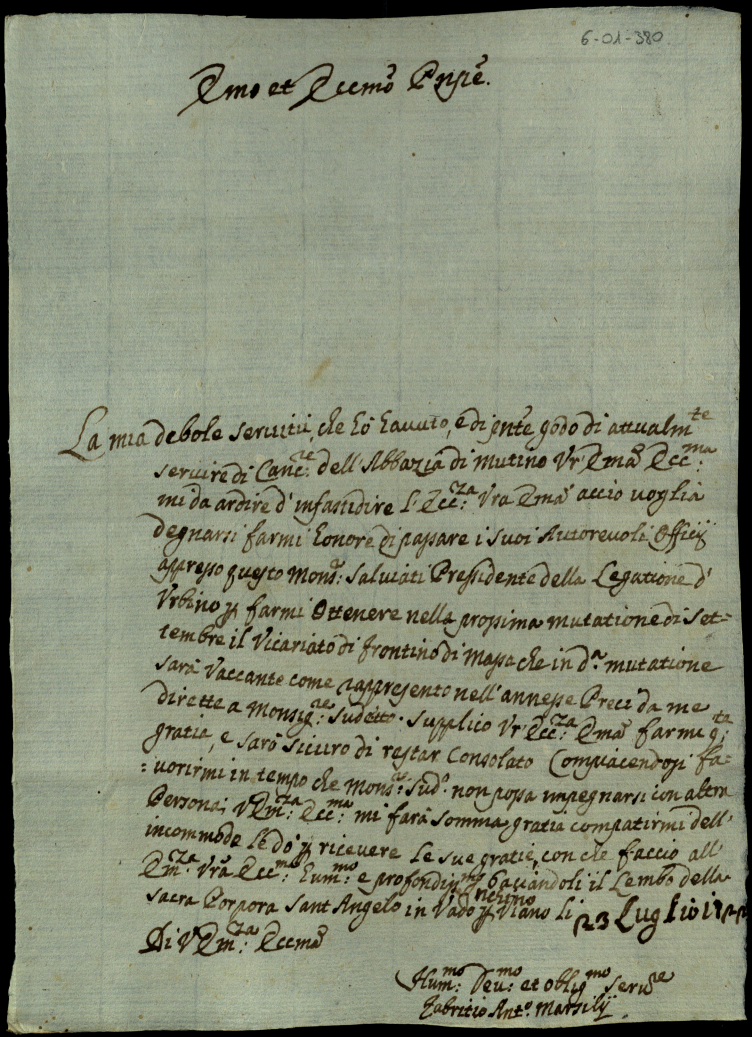 6-01-380
Emo et Eccmo Pnpe.
La mia debole servitù, che hò havuto, e di pnte godo di attualmte
servire di Cancre dell'Abbazia di Mutino Vr' Ema Eccma:
mi da ardire d'infastidire l'Ecc:za Vra Ema acciò voglia
degnarsi farmi honore di passare i suoi Autorevoli Officij
appresso questo Monsre: Salviati Pressidente della Legatione d'
Urbino p farmi Ottenere nella prossima mutatione di Set-
tembre il Vicariato di Frontino di Massa che in da. mutatione
sarà Vaccante come rappresento nell'annesse Preci da me
dirette a Monsig:re Sudetto. Supplico Vr' Ecc:za Ema farmi qta:
gratia, e sarò sicuro di restar Consolato Compiacendosi fa=
=vorirmi in tempo che Monsre: Sudo. non possa impegnarsi con altra
Persona; V Em:za Ecc:ma mi farà somma gratia compatirmi dell'
incommodo le dò p ricevere le sue gratie, con che faccio all'
Em:za Vra Ecc:ma hum:mo e profondin:mo inchino baciandoli il Lembo della
sacra Porpora Sant'Angelo in Vado p Viano li 23 Luglio 17
Di V Em:za Eccma
Hum:mo Dev:mo et oblig:mo serv:re
Fabritio Anto. Marsilij